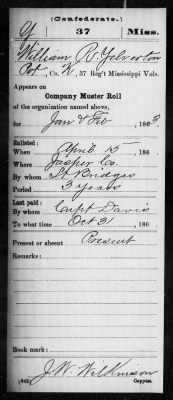 (Confederate.)
Y 37 Miss.
William R. Yelverton
Pvt, Co. K, 37 Reg't Mississippi Vols.
Appears on
Company Muster Roll
of the organization named above,
for Jan & Feb, 1863.
Enlisted:
When April 15, 186
Where Jasper Co.
By whom Lt Bridges
Period 3 Years
Last paid:
By whom Capt Davis
To what time Oct 31, 186
Present or absent Present
Remarks:
Book mark:
J. W. Wilkinson
(642) Copyist.